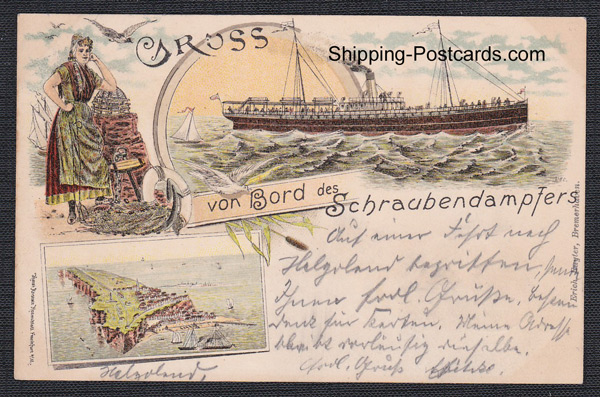 GRUSS
Shipping-Postcards.com
von Bord des
Schraubendampfers
Auf einer Fahrt nach
Helgoland begriffen,
Ihnen frdl. Grüße, besten
Dank für Karten. Meine Adresse
bleibt vorläufig dieselbe.
frdl. Gruß
Helgoland,
Bremerhaven.